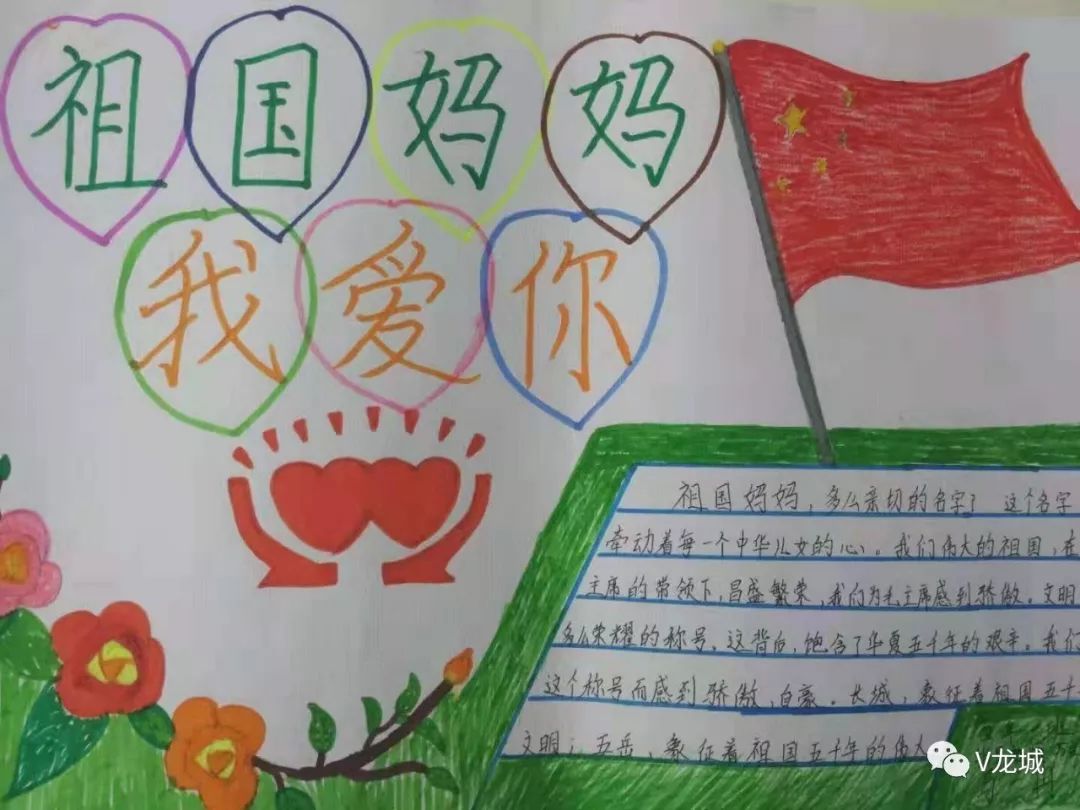 祖国妈妈
我爱你
祖国妈妈，多么亲切的名字！这个名字
牵动着每一个中华儿女的心。我们伟大的祖国，在
主席的带领下，昌盛繁荣，我们为毛主席感到骄傲。文明
多么荣耀的称号。这背后，饱含了华夏五千年的艰辛。我们
这个称号而感到骄傲，自豪。长城，象征着祖国五千
文明；五岳，象征着祖国五千年的伟大
V龙城